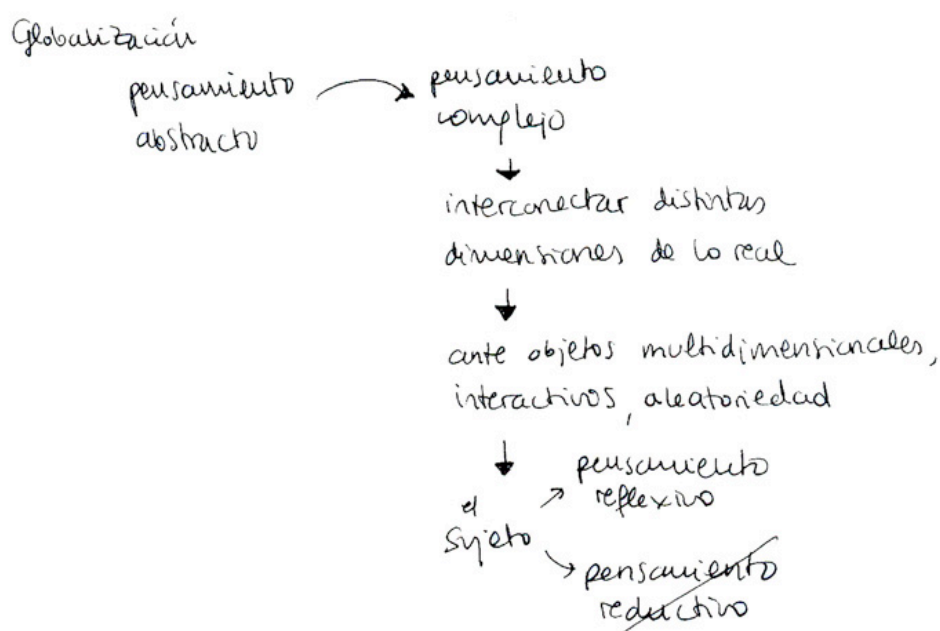 Globalización
pensamiento
abstracto
pensamiento
complejo
interconectar distintas
dimensiones de lo real
ante objetos multidimensionales,
interactivos, aleatoriedad
el
Sujeto
pensamiento
reflexivo
pensamiento
reductivo